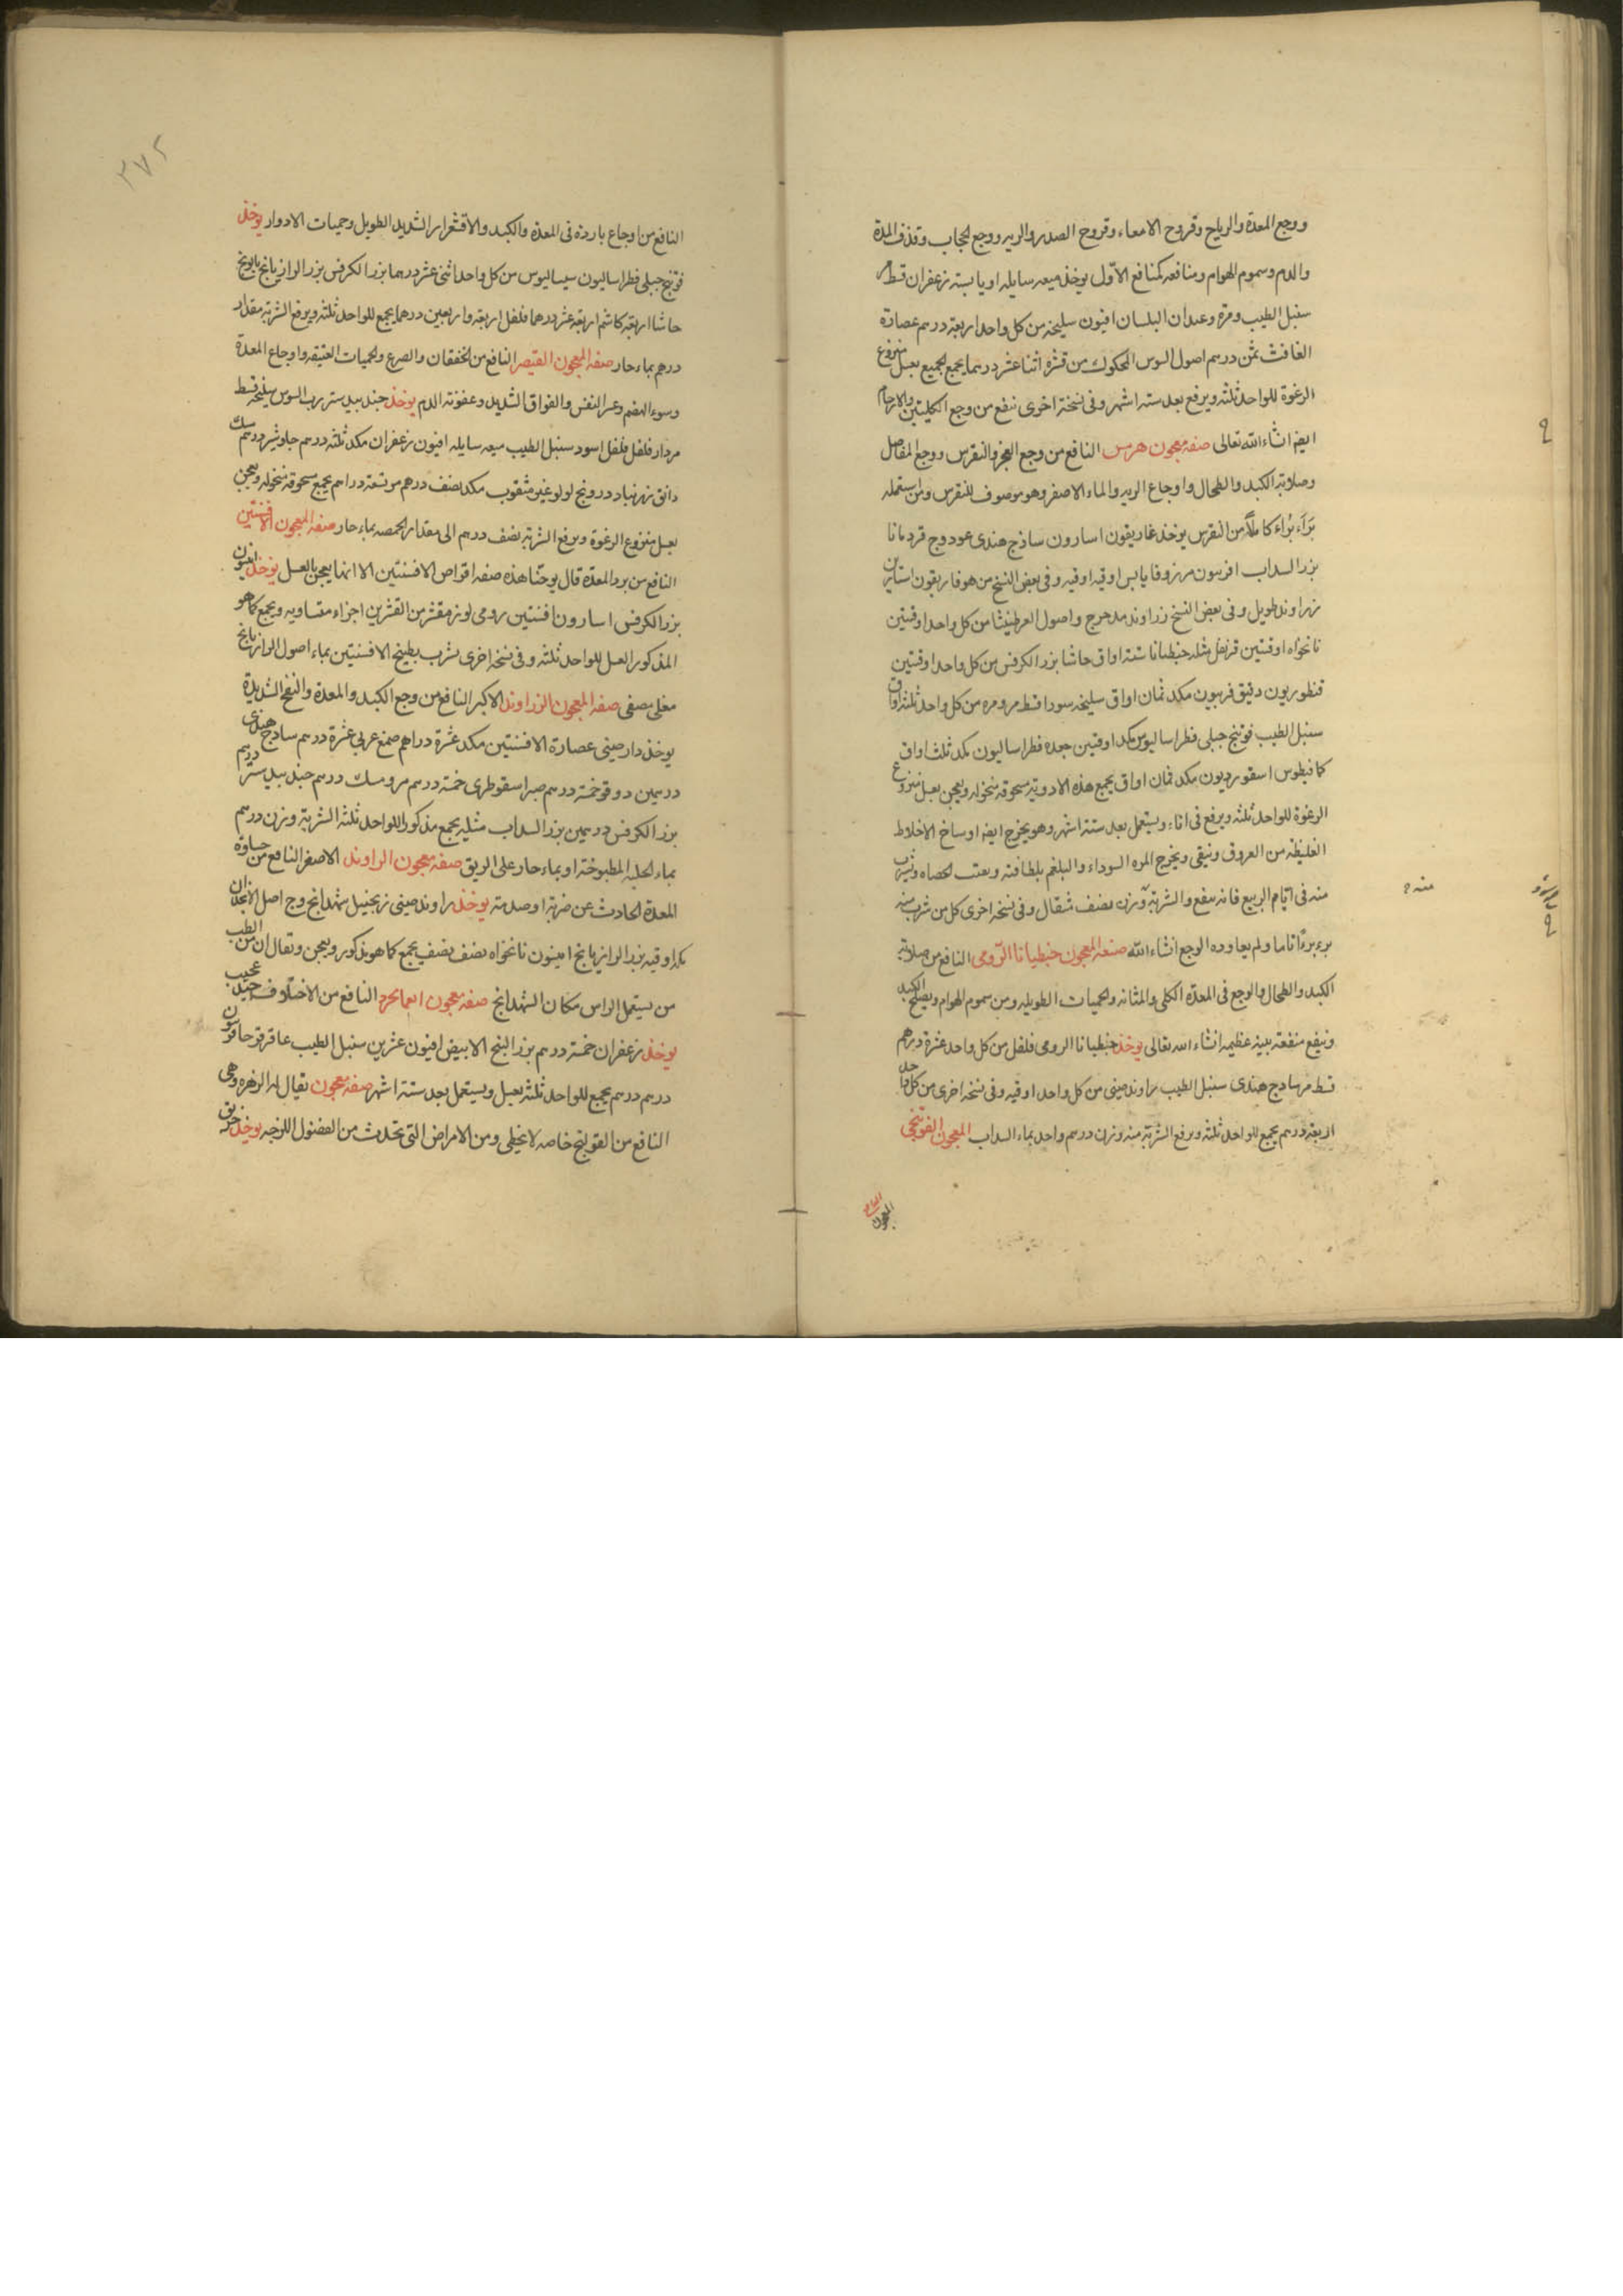 ووجع المعدة والرياح وقروح الامعاء وقروح الصدر والريه ووجع الحجاب وقذف المدة
والدم وسموم الهوام ومنافعه كمنافع الاول يوخذ ميعه سايله او يابسته زعفران قسط مر
سنبل الطيب ومره وعيدان البلسان افيون سليخه من كل واحد اربعة درهم عصارة
الغافث ثمن درهم اصول السوس المحكوك من قشره اثنا عشر درهما يجمع الجميع بعسل منزوع
الرغوة للواحد ثلثه ويرفع بعد سته اشهر وفى نسخة اخرى ينفع من وجع الكليتين والارحام
ايضا انشاء الله تعالى صفه معجون هرمس النافع من وجع الظهر والنقرس ووجع المفاصل
وصلابة الكبد والطحال واوجاع الريه والماء الاصفر وهو موصوف للنقرس ومن استعمله
براء براء كاملا من النقرس يوخذ غاريقون اسارون ساذج هندى عود وج قردمانا
بزر السداب افربيون مر زوفا يابس اوقيه اوقيه وفى بعض النسخ من هوفاريقون استارين
زراوند طويل وفى بعض النسخ زراوند مدحرج واصول العرطنيثا من كل واحد اوقيتين
نانخواه اوقيتين قرنفل مثله جنطيانا ستة اواق حاشا بزر الكرفس من كل واحد اوقيتين
قنطوريون دقيق فربيون مكد ثمان اواق سليخه سودا قسط مر ومره من كل واحد ثلثه اواق
سنبل الطيب فوتنج جبلى فطراساليوس مكد اوقيتين جعده فطراساليون مكد ثلث اواق
كمافيطوس اسقورديون مكد ثمان اواق يجمع هذه الادوية مسحوقه منخوله ويعجن بعسل منزوع
الرغوة للواحد ثلثه ويرفع فى اناء ويستعمل بعد ستة اشهر وهو يخرج ايضا اوساخ الاخلاط
الغليظه من العروق وينقى ويخرج المره السوداء والبلغم بلطافته ويفتت الحصاه ويشرب
منه فى ايام الربيع فانه ينفع والشربة وزن نصف مثقال وفى نسخه اخرى كل من شرب منه
برء برءا تاما ولم يعاوده الوجع انشاء الله صفة المعجون جنطيانا الرومى النافع من صلابة
الكبد والطحال والوجع فى المعده الكلى والمثانه والحميات الطويله ومن سموم الهوام ويصلح الكبد
وينفع منفعة بينه عظيمه انشاء الله تعالى يوخذ جنطيانا الرومى فلفل من كل واحد عشرة درهم
قسط مر ساذج هندى سنبل الطيب راوند صينى من كل واحد اوقيه وفى نسخه اخرى من كل واحد
اربعة درهم يجمع للواحد ثلثه ويرفع الشربة منه وزن درهم واحد بماء السداب المعجون الفوتنجى
منه
٣٧٢
النافع من اوجاع باردة فى المعدة والكبد والاقشعرار الشديد الطويل وحميات الادوار يوخذ
فوتنج جبلى فطراساليون سيساليوس من كل واحد اثنى عشر درهما بزر الكرفس بزر الرازيانج بابونج
حاشا اربعة كاشم اربعة عشر درهما فلفل اربعه واربعين درهما يجمع للواحد ثلثه ويرفع الشربة مقدار
درهم بماء حار صفه المعجون القيصر النافع من الخفقان والصرع والحميات العتيقه واوجاع المعدة
وسوء الهضم وعسر النفس والفواق الشديد وعفونة الدم يوخذ جند بيدستر رب السوس سليخه قسط
مر دار فلفل فلفل اسود سنبل الطيب ميعه سايله افيون زعفران مكد ثلثه درهم جاوشير درهم مسك
دانق زرنباد درونج لولو غير مثقوب مكد نصف درهم مر تسعة دراهم يجمع مسحوقه منخوله ويعجن
بعسل منزوع الرغوة ويرفع الشربة نصف درهم الى مقدار الحمصه بماء حار صفه المعجون الافسنتين
النافع من برد المعدة قال يوحنا هذه صفه اقراص الافسنتين الا انها يعجن بالعسل يوخذ انيسون
بزر الكرفس اسارون افسنتين رومى لوز مقشر من القشرين اجزاء متساويه ويجمع كما هو
المذكور العسل للواحد ثلثه وفى نسخه اخرى يشرب بطبيخ الافسنتين بماء اصول الرازيانج
مغلى مصفى صفه المعجون الزراوند الاكبر النافع من وجع الكبد والمعدة والنفخ الشديدة
يوخذ دارصينى عصارة الافسنتين مكد عشرة دراهم صمغ عربى عشرة درهم ساذج هندى
درهمين دوقو خمسة درهم صبر اسقوطرى خمسة درهم مر ومسك درهم جند بيدستر درهم
بزر الكرفس درهمين بزر السداب مثليه يجمع مذكورا للواحد ثلثه الشربة وزن درهم
بماء الحلبه المطبوخة او بماء حار على الريق صفه معجون الراوند الاصغر النافع من جساوة
المعدة الحادث عن ضربة او صدمة يوخذ راوند صينى زنجبيل شهدانج وج اصل الانجدان
مكد اوقيه بزر الرازيانج انيسون نانخواه نصف نصف يجمع كما هو مذكور ويعجن ويقال ان من الطب
من يستعمل الراس مكان الشهدانج صفه معجون النافع من الاختلاف عجيب جيد
يوخذ زعفران خمسة درهم بزر البنج الابيض افيون عشرين سنبل الطيب عاقرقرحا فربيون
درهم درهم يجمع للواحد ثلثه بعسل ويستعمل بعد ستة اشهر صفه معجون يقال له الزهره وهى
النافع من القولنج خاصه لا يخطى ومن الامراض التى تحدث من الفضول اللزجه يوخذ خربق